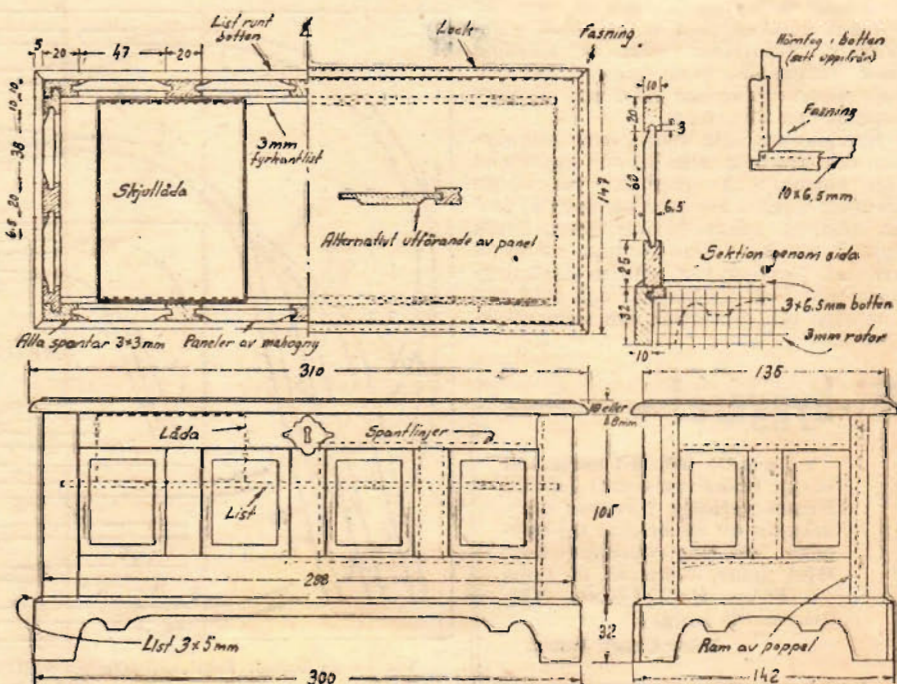 List runt
botten
Lock
Fasning
Hörnfog i botten
(sett uppifrån)
Fasning
10×6,5mm
5
20
47
20
10
10
38
20
6.5
3mm
fyrkantlist
Skjutlåda
Alternativt utförande av panel
147
10
20
3
60
6.5
25
32
10
Sektion genom sida
3×6.5mm botten
3mm rutor
Alla spontar 3×3mm
Paneler av mahogny
310
136
eller
8mm
Låda
Spontlinjer
List
105
288
32
List 3×5mm
Ram av poppel
300
142